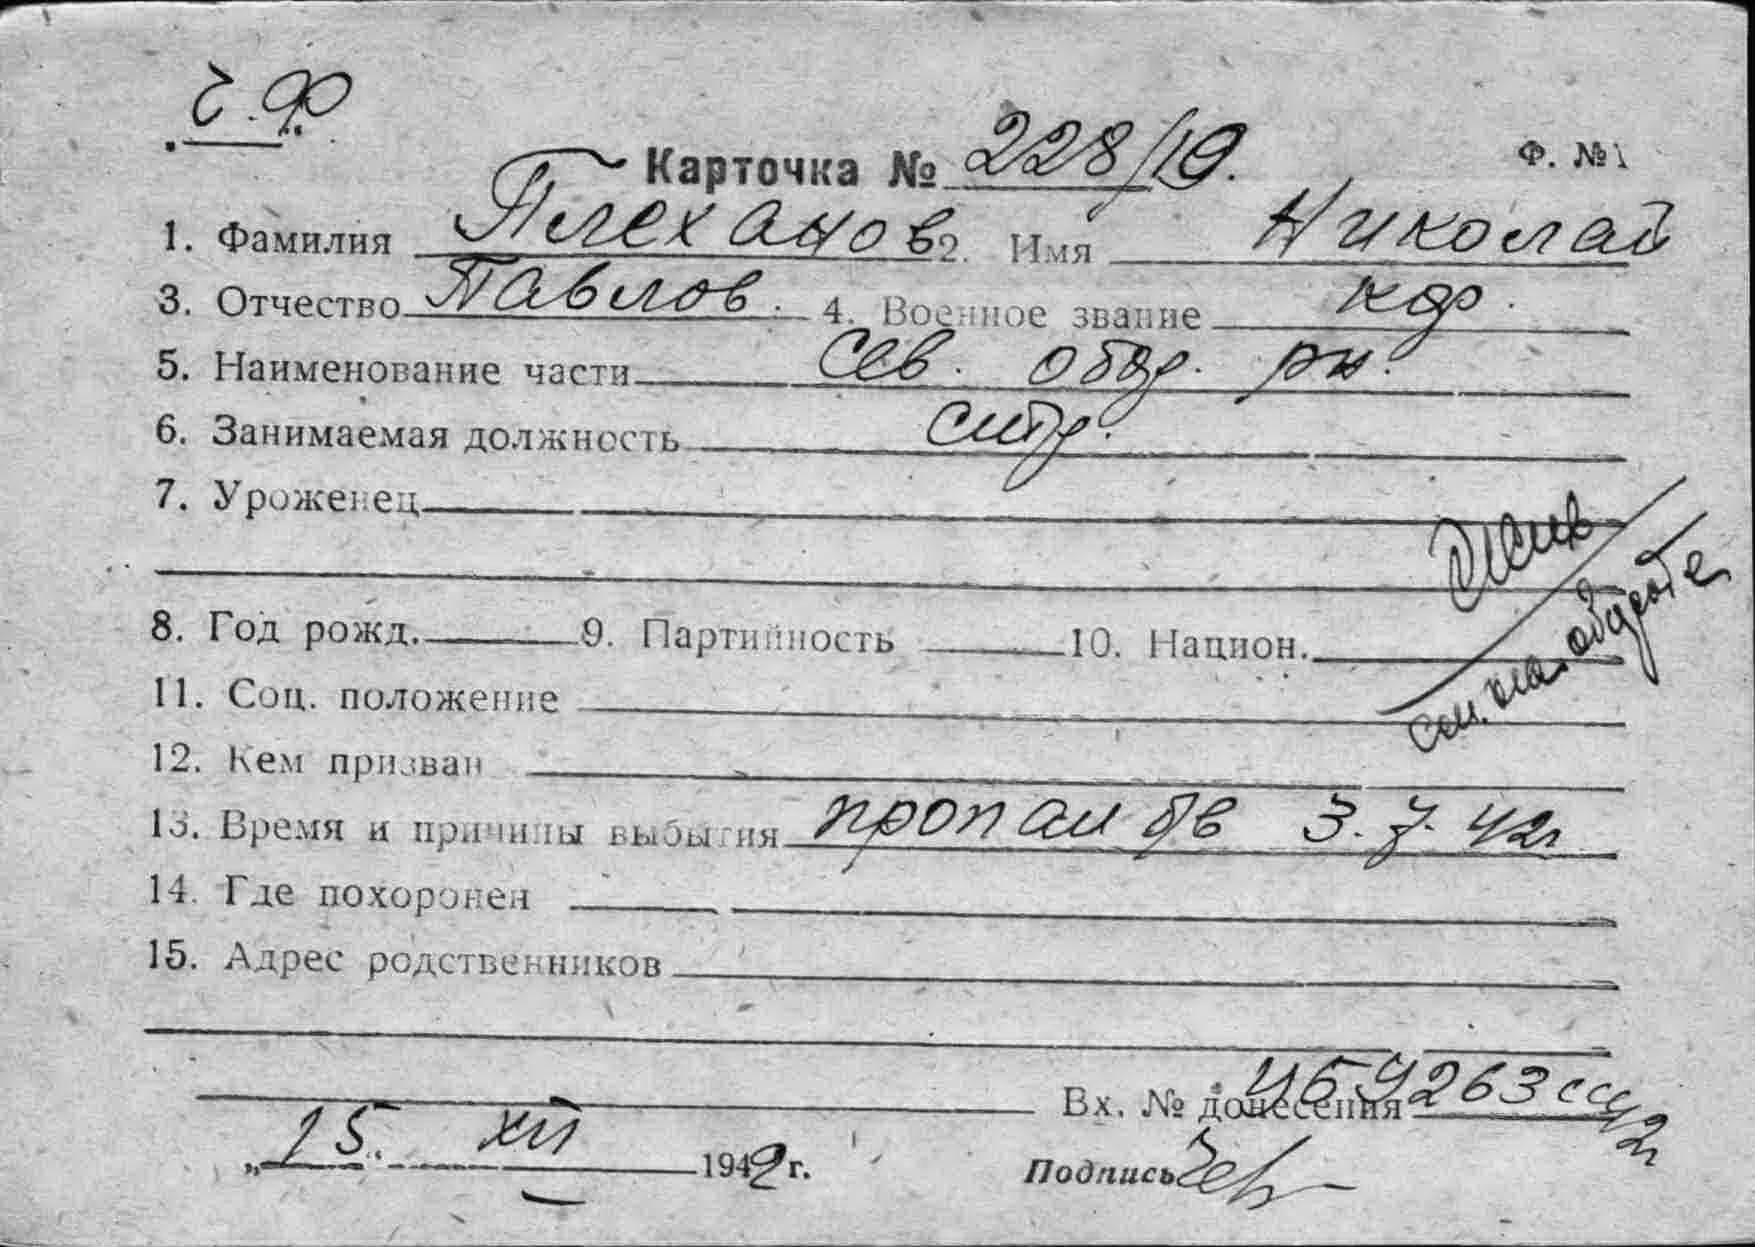 Ч.Ф.
Карточка № 228/19. Ф. №1
1. Фамилия Плеханов 2. Имя Николай
3. Отчество Павлов. 4. Военное звание кдр.
5. Наименование части Сев. обор. рн.
6. Занимаемая должность
7. Уроженец
Жив
см. на обороте
8. Год рожд. 9. Партийность 10. Национ.
11. Соц. положение
12. Кем призван
13. Время и причины выбытия пропал б/в 3.7.42г
14. Где похоронен
15. Адрес родственников
Вх. № донесения
„15“ XII 1942 г. Подпись